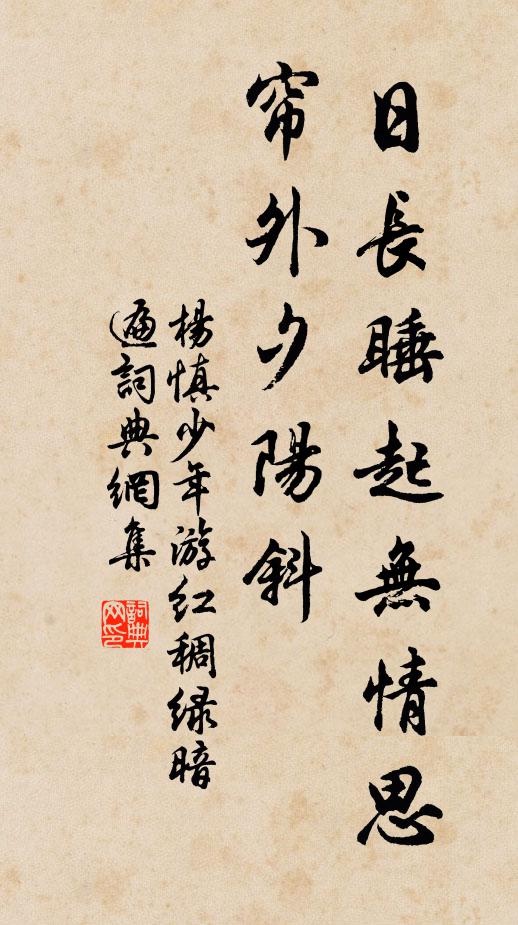 日長睡起無情思
帘外夕陽斜
楊慎少年游红稠绿暗
遍詞典網集
詞典
网印